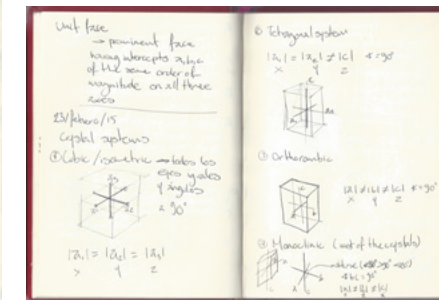 Unit face
→ prominent face
having intercepts a, b, c
of the same order of
magnitude on all three
axes
23/febrero/15
Crystal systems
① Cubic / isometric → todos los
ejes iguales
y ángulos
= 90°
|a₁| = |a₂| = |a₃|
x y z
② Tetragonal system
|a₁| = |a₂| ≠ |c| ∢ = 90°
x y z
c
③ Orthorombic
|a| ≠ |b| ≠ |c| ∢ = 90°
x y z
④ Monoclinic (most of the crystals)
|a| ≠ |b| ≠ |c|